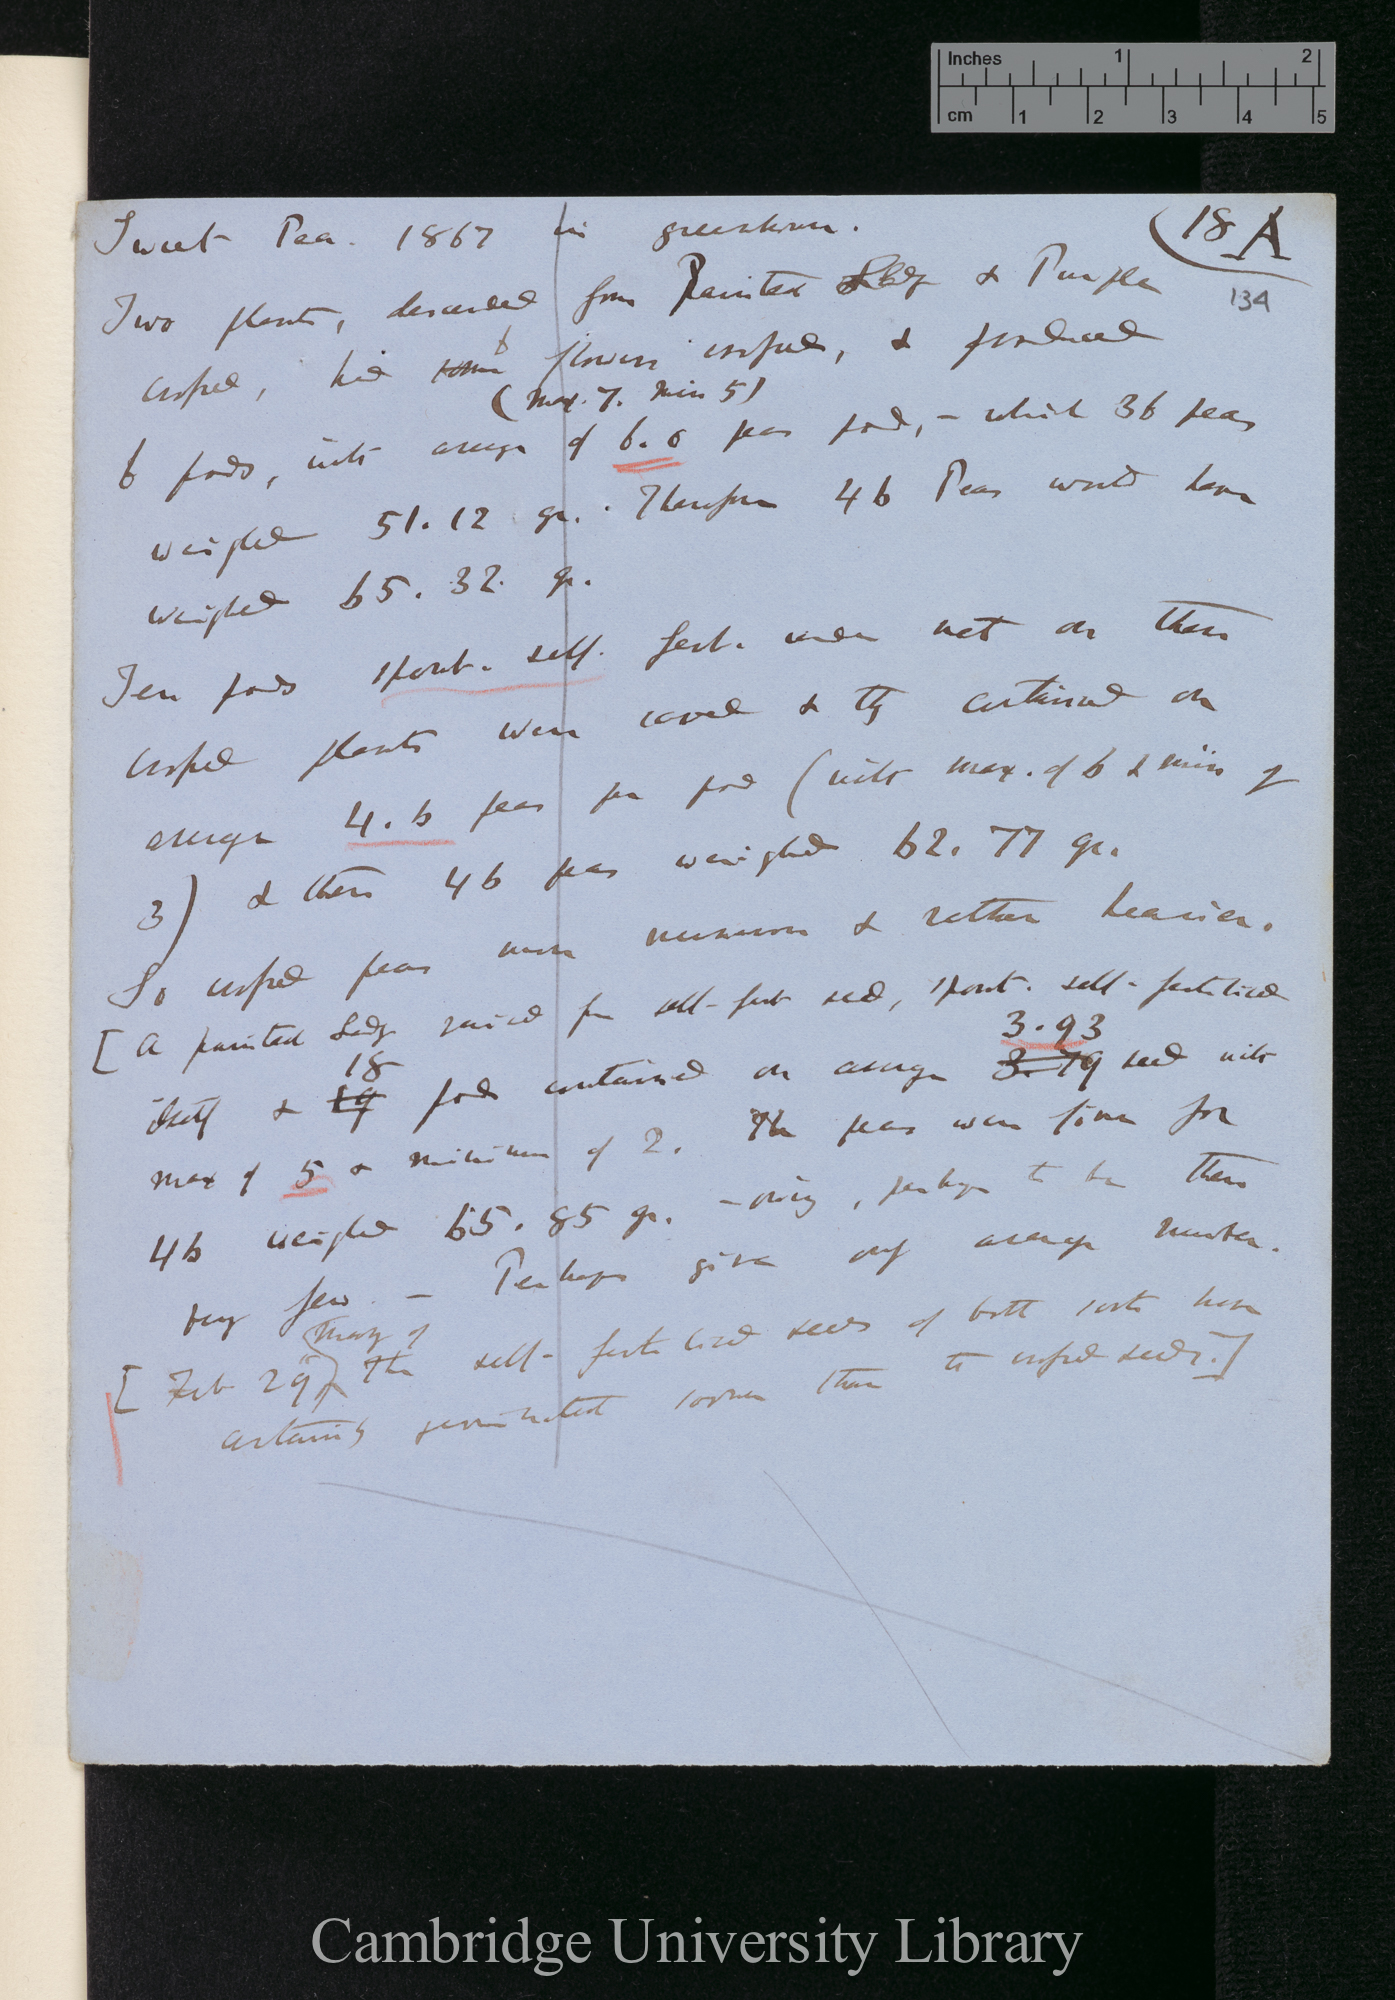 Inches 1 2
cm 1 2 3 4 5
Sweet Pea. 1867 in greenhouse.
(18 A
134
Two plants, descended from Painted Lady & Purple
crossed, had some 6 flowers crossed, & produced
(max. 7. Min 5)
6 pods, with average of 6.0 peas pod, – which 36 peas
weighed 51.12 gr. Therefore 46 Peas would have
weighed 65.32 gr.
Ten pods spont. self. fert. under net on these
crossed plants were saved & they contained on
average 4.6 peas per pod (with max. of 6 & min of
3) & these 46 peas weighed 62.77 gr.
So crossed peas more numerous & rather heavier.
[A painted Lady raised fr self-fert seed, spont. self-fertilised
18 3.93
itself & 19 pods contained on average 3.79 seed with
max of 5 & minimum of 2. The peas were fine for
46 weighed 65.85 gr. – owing, perhaps to be there
very few – Perhaps give only average number.
(many of
[Feb 29) The self-fertilised seeds of both lots have
certainly germinated sooner than the crossed seeds.]
Cambridge University Library